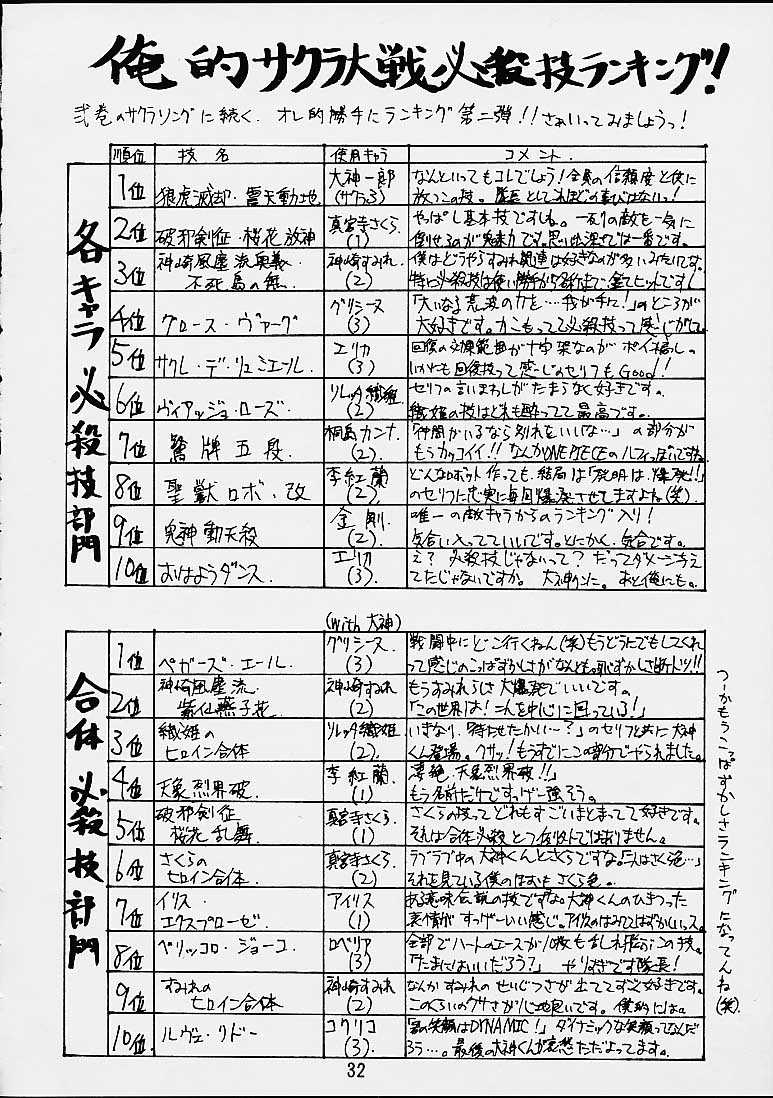 俺的サクラ大戦必殺技ランキング!
弐巻のサクラソングに続く、オレ的勝手にランキング第二弾!!さぁいってみましょうっ!
各キャラ必殺技部門
順位 技名 使用キャラ コメント
1位 狼虎滅却・震天動地 大神一郎
(サクラ3)
なんといってもコレでしょう!全員の信頼度と供に
放つこの技。隊長としてこれほどの喜びはないっ!
2位 破邪剣征・桜花放神 真宮寺さくら
(1)
やっぱし基本技ですしね。一列の敵も一気に
倒せるのが魅力です。思い出深さでは一番です。
3位 神崎風塵流奥義・
不死鳥の舞 神崎すみれ
(2)
僕はどうやらすみれ関連は好きなのが多いみたいです。
特に必殺技は使い勝手から名前まで全てヒットです!
4位 グロース・ヴァーグ グリシーヌ
(3)
「大いなる荒波の力を…我が手に!」のところが
大好きです。力こもってて必殺技って感じがして。
5位 サクレ・デ・リュミエール エリカ
(3)
回復の効果範囲が十字架なのがポイント高しの
いかにも回復技って感じのセリフもGood!
6位 ヴィアッジョ・ローズ ソレッタ織姫
(2)
セリフの言いまわしがたまらなく好きです。
織姫の技はどれも酔ってて最高です。
7位 鷲牌五段 桐島カンナ
(2)
「仲間がいるなら別れをいいな…」の部分が
もうカッコイイ!!なんかONE PIECEのルフィっぽいですね。
8位 聖獣ロボ・改 李紅蘭
(2)
どんなロボット作っても、結局は「発明は、爆発!!」
のセリフに忠実に毎回爆発させてますよね(笑)
9位 鬼神動天殺 金剛
(2)
唯一の敵キャラからのランキング入り!
気合い入ってていいです。とにかく、気合です。
10位 おはようダンス エリカ
(3)
え?必殺技じゃないって?だってダメージ与え
てたじゃないですか。大神クンに。あと俺にも。
合体必殺技部門
(with 大神)
1位 ペガーズ・エール グリシーヌ
(3)
戦闘中にどこ行くねん(笑)もうどうにでもしてくれ
って感じのこっぱずかしさがなんとも。恥ずかしさ断トツ!!
2位 神崎風塵流
紫仙燕子花 神崎すみれ
(2)
もうすみれらしさ大爆発でいいです。
「この世界は!二人を中心に回っている!」
3位 織姫の
ヒロイン合体 ソレッタ織姫
(2)
いきなり、「待たせたかい〜?」のセリフと共に大神
くん登場。クサッ!もうすでにこの部分でやられました。
4位 天象烈界破 李紅蘭
(1)
「凄絶、天象烈界破!!」
もう名前だけですっげー強そう。
5位 破邪剣征
桜花乱舞 真宮寺さくら
(1)
さくらの技ってどれもすごいまとまってて好きです。
それは合体必殺とて例外ではありません。
6位 さくらの
ヒロイン合体 真宮寺さくら
(2)
ラブラブ中の大神くんとさくらですな。「二人はさくら色…」
それを見ている僕のほほもさくら色。
7位 イリス
エクスプローゼ アイリス
(1)
ある意味伝説の技ですな。大神くんのひきつった
表情がすっげーいい感じ。アイリスのはみててはずかしいっス。
8位 ペリッコロ・ジョーコ ロベリア
(3)
全部でハートのエースが10枚もまじれ飛ぶこの技。
「たまにはいいだろう?」 やりすぎです隊長!
9位 すみれの
ヒロイン合体 神崎すみれ
(2)
なんかすみれのせいじつさが出ててすごく好きです。
このくらいのクサさが心地良いです。僕的には。
10位 ルヴェ・リドー コクリコ
(3)
「君の笑顔はDYNAMIC!」ダイナミックな笑顔ってなんだ
ろう…。最後の大神くんが哀愁ただよってます。
つーかもうこっぱずかしさランキングになってんね(笑)
32